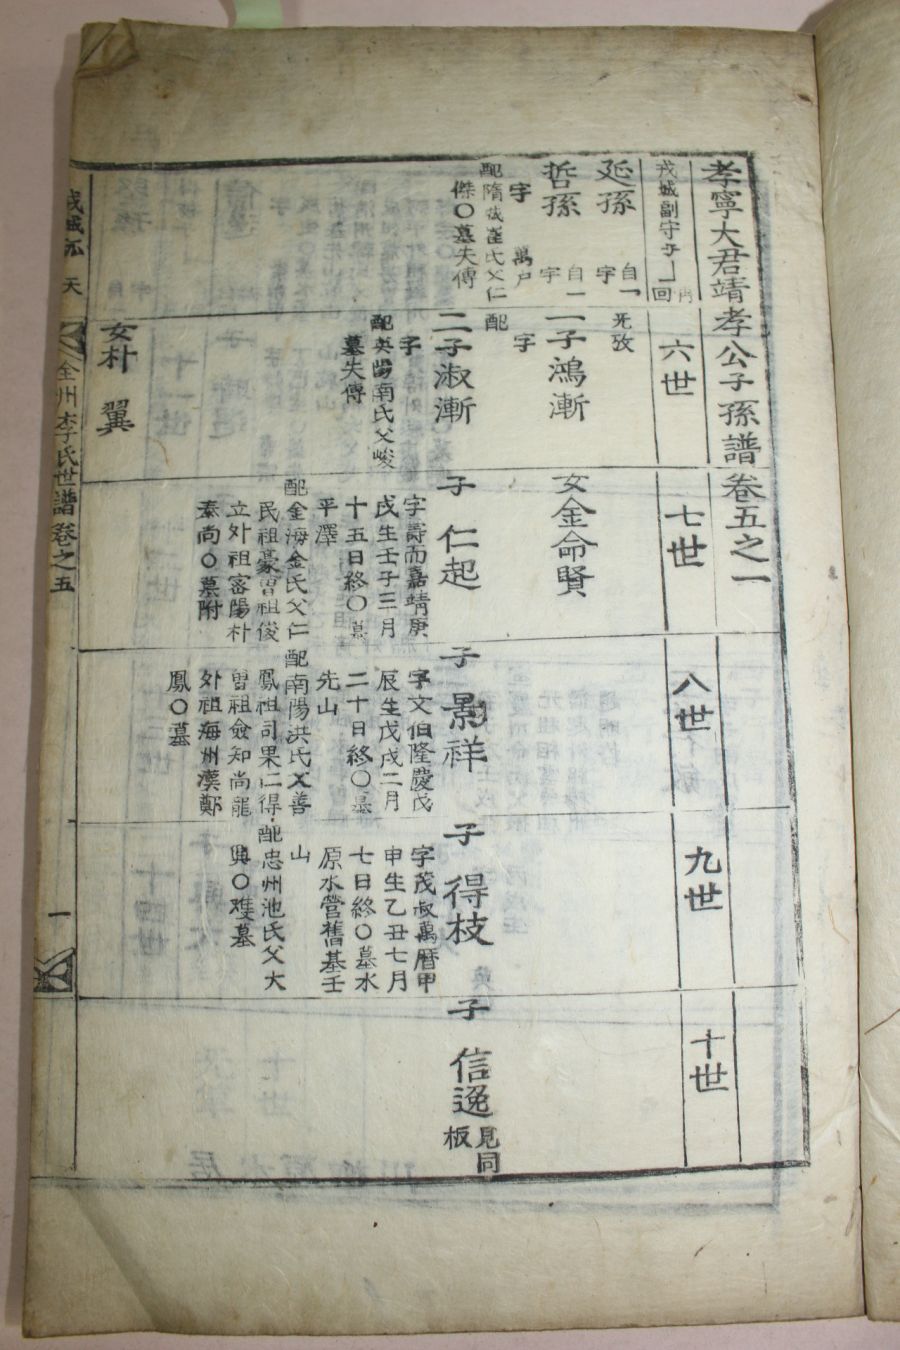 孝寧大君靖孝公子孫譜卷五之一
六世
七世
八世
九世
十世
戎城副守子
延孫
自一
字
无攷
哲孫
自一
字
字
萬户
氏父仁
傑〇墓失傳
一子鴻漸
字
配
女金命賢
二子淑漸
字
配英陽南氏父峻
墓失傳
子仁起
字壽而嘉靖庚
戌生壬子三月
十五日終〇墓
平澤
配金海金氏父仁
民祖豪曽祖俊
立外祖密陽朴
秦尚〇墓附
子景祥
字文伯隆慶戊
辰生戊戌二月
二十日終〇墓
先山
配南陽洪氏父善
鳳祖司果仁得
曽祖僉知尚龍
外祖海州漢鄭
鳳〇墓
子得枝
字茂叔萬曆甲
申生乙丑七月
七日終〇墓水
原水營舊基壬
山
配忠州池氏父大
興〇双墓
子信逸
見同
板
女朴翼
天
全州李氏世譜卷之五
一